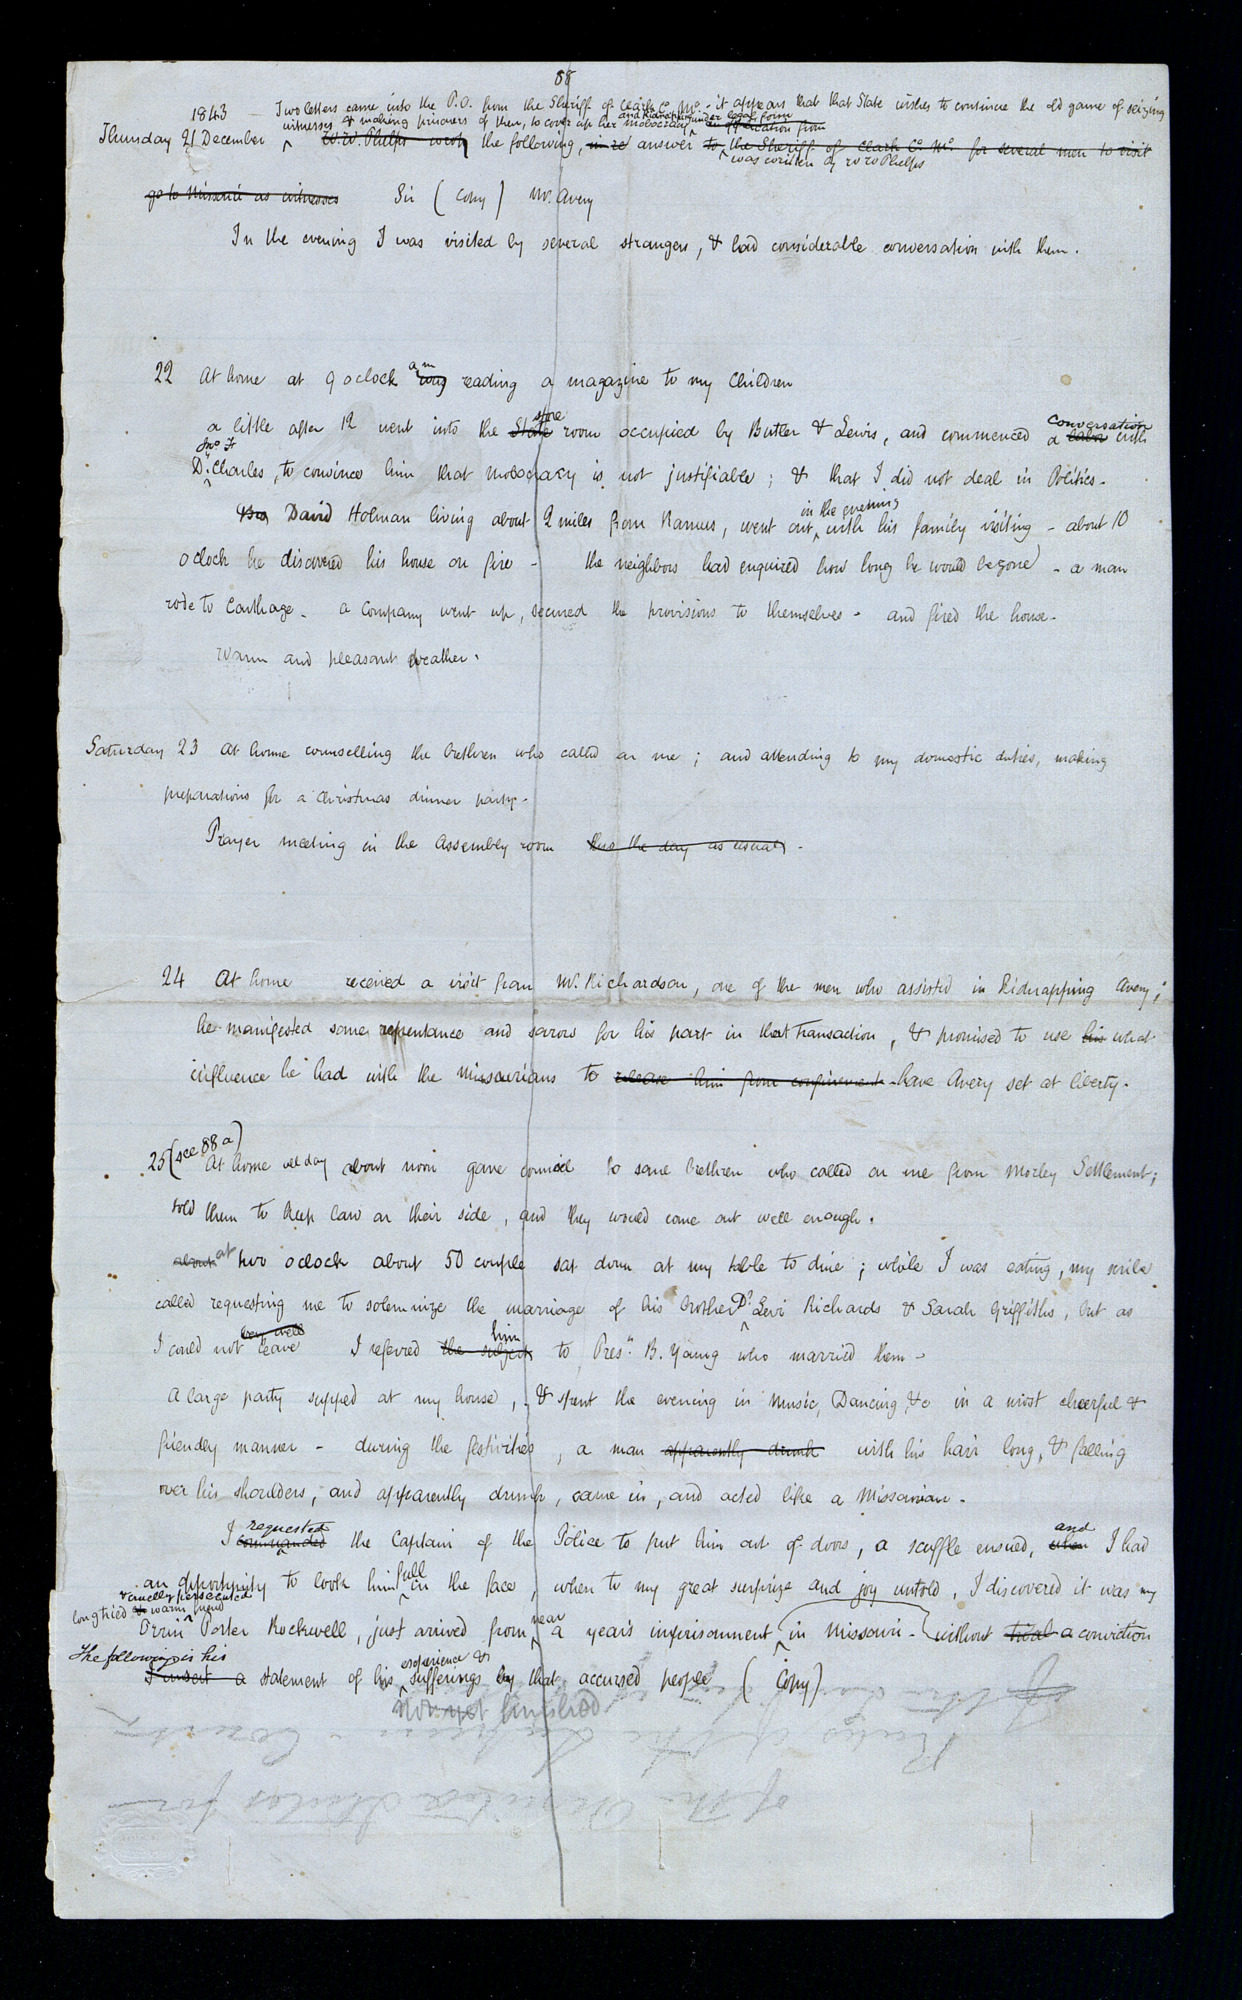 88
1843 Two letters came into the P.O. from the Sheriff of Clark Co. Mo. - it appears that that State wishes to continue the old game of seizing
witnesses & making prisoners of them, to cover up her mobocracy and Kidnapping under legal form
Thursday 21 December W. W. Phelps wrote the following, answer to the Sheriff of Clark Co. Mo. for several men to visit
was written by W W Phelps
go to Missouri as witnesses Sir (Copy) Mr. Avery
In the evening I was visited by several strangers, & had considerable conversation with them.
22 At home at 9 oclock a m reading a magazine to my Children
a little after 12 went into the State store room occupied by Butler & Lewis, and commenced a labor conversation with
Dr. Jno. F Charles, to convince him that mobocracy is not justifiable; & that I did not deal in Politics.
David Holman living about 2 miles from Ramus, went out in the evening with his family visiting - about 10
oclock he discovered his house on fire - the neighbors had enquired how long he would be gone - a man
rode to Carthage. a Company went up, secured the provisions to themselves - and fired the house.
Warm and pleasant weather.
Saturday 23 At home counselling the brethren who called on me; and attending to my domestic duties, making
preparations for a Christmas dinner party.
Prayer meeting in the Assembly room thro the day as usual.
24 At home received a visit from Mr. Richardson, one of the men who assisted in Kidnapping Avery;
he manifested some repentance and sorrow for his part in that transaction, & promised to use his what
influence he had with the Missourians to release him from confinement have Avery set at liberty.
25 (see 88 a) At home all day about noon gave council to some brethren who called on me from Morley Settlement;
told them to keep law on their side, and they would come out well enough.
about at two oclock about 50 couple sat down at my table to dine; while I was eating, my scribe
called requesting me to solemnize the marriage of his brother Dr. Levi Richards & Sarah Griffiths, but as
I could not very well leave I referred the subject him to Pres.t B. Young who married them -
A large party supped at my house, & spent the evening in Music, Dancing, &c in a most cheerful &
friendly manner - during the festivities, a man apparently drunk with his hair long, & falling
over his shoulders, and apparently drunk, came in, and acted like a Missourian.
I commanded requested the Captain of the Police to put him out of doors, a scuffle ensued, when and I had
an opportunity to look him full in the face, when to my great surprize and joy untold, I discovered it was my
long tried warm & cruelly persecuted friend
Orrin Porter Rockwell, just arrived from near a year's imprisonment in Missouri - without trial a conviction
The following is his
I insert a statement of his experience & sufferings by that accursed people (Copy)
not yet finished
Rules of the Supreme Court
of the United States for